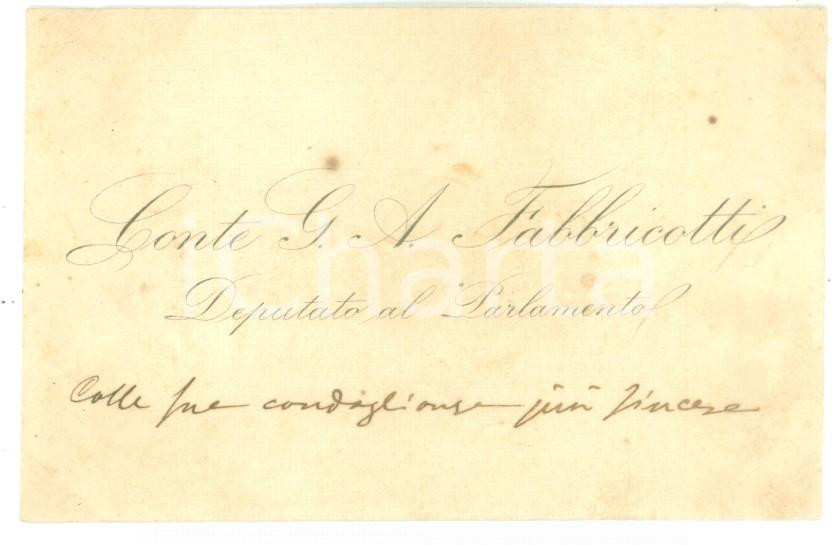 Conte G. A. Fabbricotti
Deputato al Parlamento
Colle sue condoglianze più sincere
iCharta